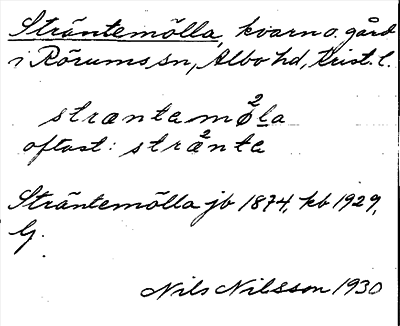 Sträntemölla, kvarn o. gård
i Rörums sn, Albo hd, Krist. l.
stræntemø²la
oftast: stræ²nta
Sträntemölla jb 1874, kb 1929,
G.
Nils Nilsson 1930